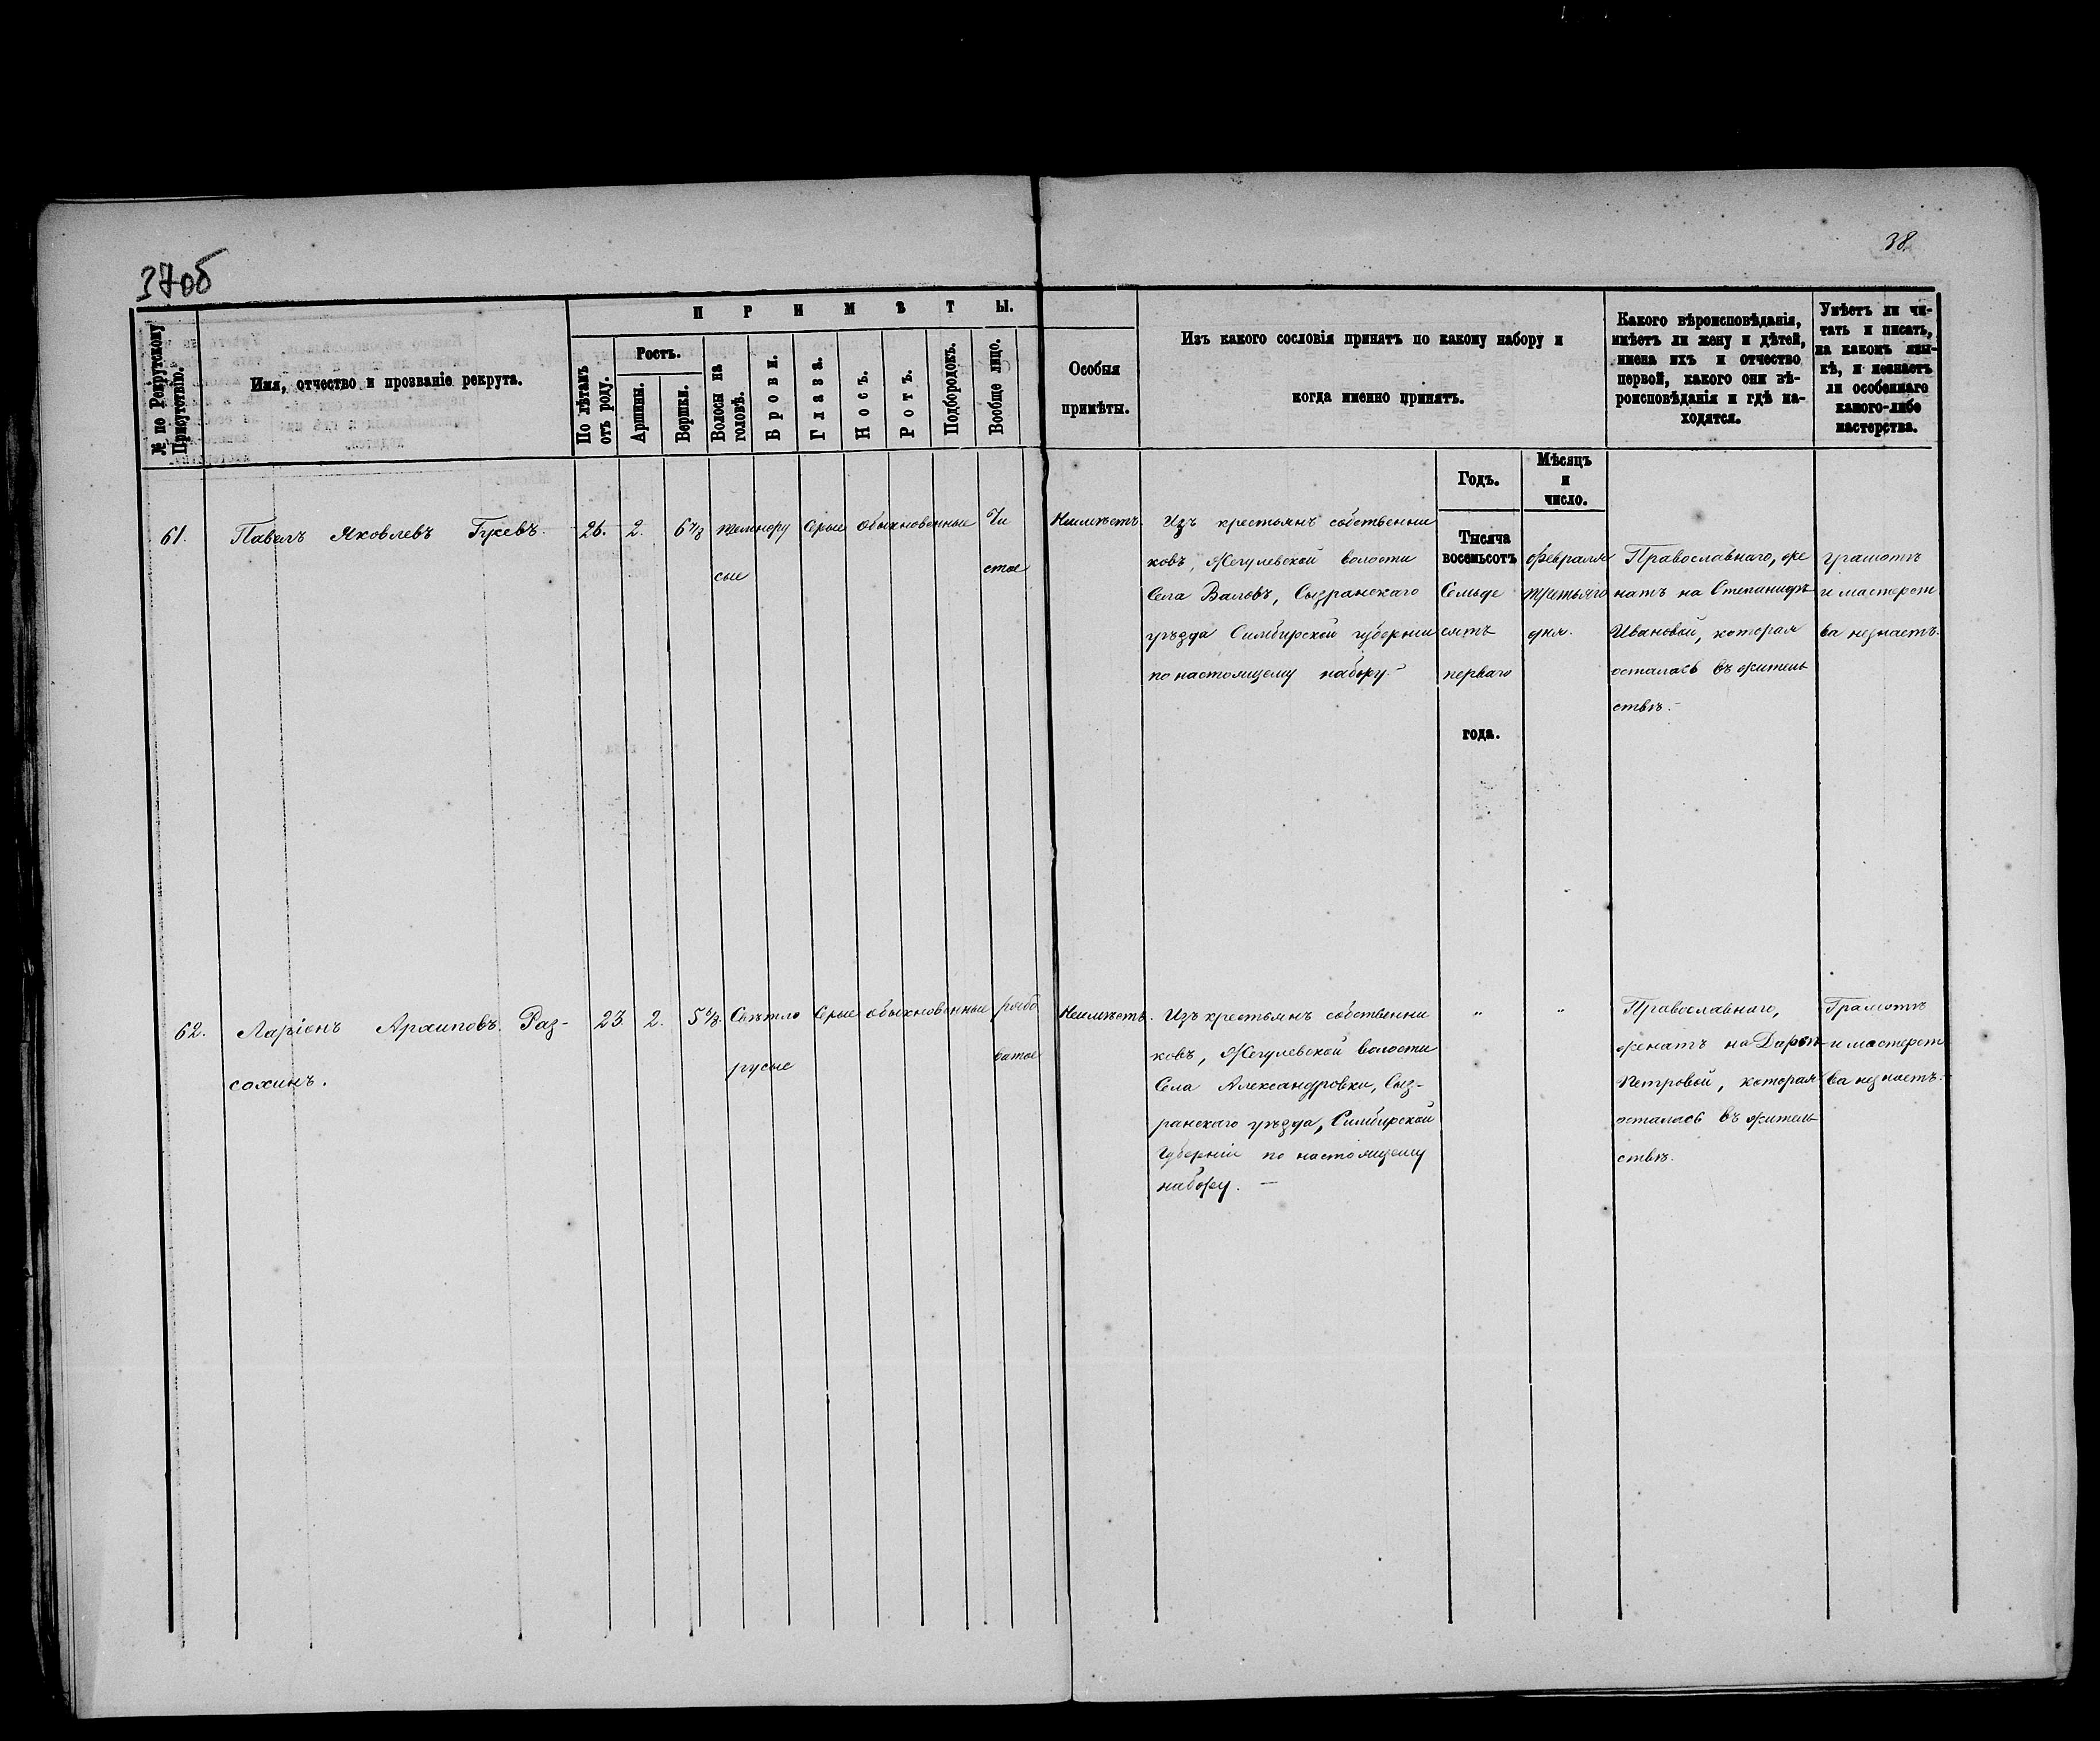 37об
38.
№ по Рекрутскому Присутствію.
Имя, отчество и прозваніе рекрута.
ПРИМѢТЫ.
По лѣтамъ отъ роду.
Ростъ.
Аршины.
Вершки.
Волосы на головѣ.
Брови.
Глаза.
Носъ.
Ротъ.
Подбородокъ.
Вообще лицо.
Особыя
примѣты.
Изъ какого сословія принятъ по какому набору и
когда именно принятъ.
Какого вѣроисповѣданія,
имѣетъ ли жену и дѣтей,
имена ихъ и отчество
первой, какого они вѣ-
роисповѣданія и гдѣ на-
ходятся.
Умѣетъ ли чи-
тать и писать,
на какомъ язы-
кѣ, и незнаетъ
ли особеннаго
какого-либо
мастерства.
Годъ.
Мѣсяцъ
и
число.
61. Павелъ Яковлевъ 26. 2. 6 темнору Серые обыкновенные Чи
сые стое
Неимѣетъ.
Изъ крестьянъ собственни
ковъ, Жегулевской волости
Села Валовъ, Сызранскаго
уѣзда Симбирской губерніи
по настоящему набору.
Тысяча
восемьсотъ
Семьде
сятъ
перваго
года.
Февраля
третьяго
дня.
Православнаго, же
натъ на Степанидѣ
Ивановой, которая
осталась въ житель
ствѣ.-
грамотѣ
и мастерст
ва незнаетъ.
62. Ларіонъ Архиповъ Раз- 23. 2. 5 Свѣтло Серые обыкновенные рябо
сохинъ. русые ватое
Неимѣетъ.
Изъ крестьянъ собственни
ковъ, Жегулевской волости
Села Александровки, Сыз-
ранскаго уѣзда, Симбирской
Губерніи по настоящему
набору. —
"
"
Православнаго,
женатъ на Дарьѣ
Петровой, которая
осталась въ житель
ствѣ.
Грамотѣ
и мастерст
ва незнаетъ.-